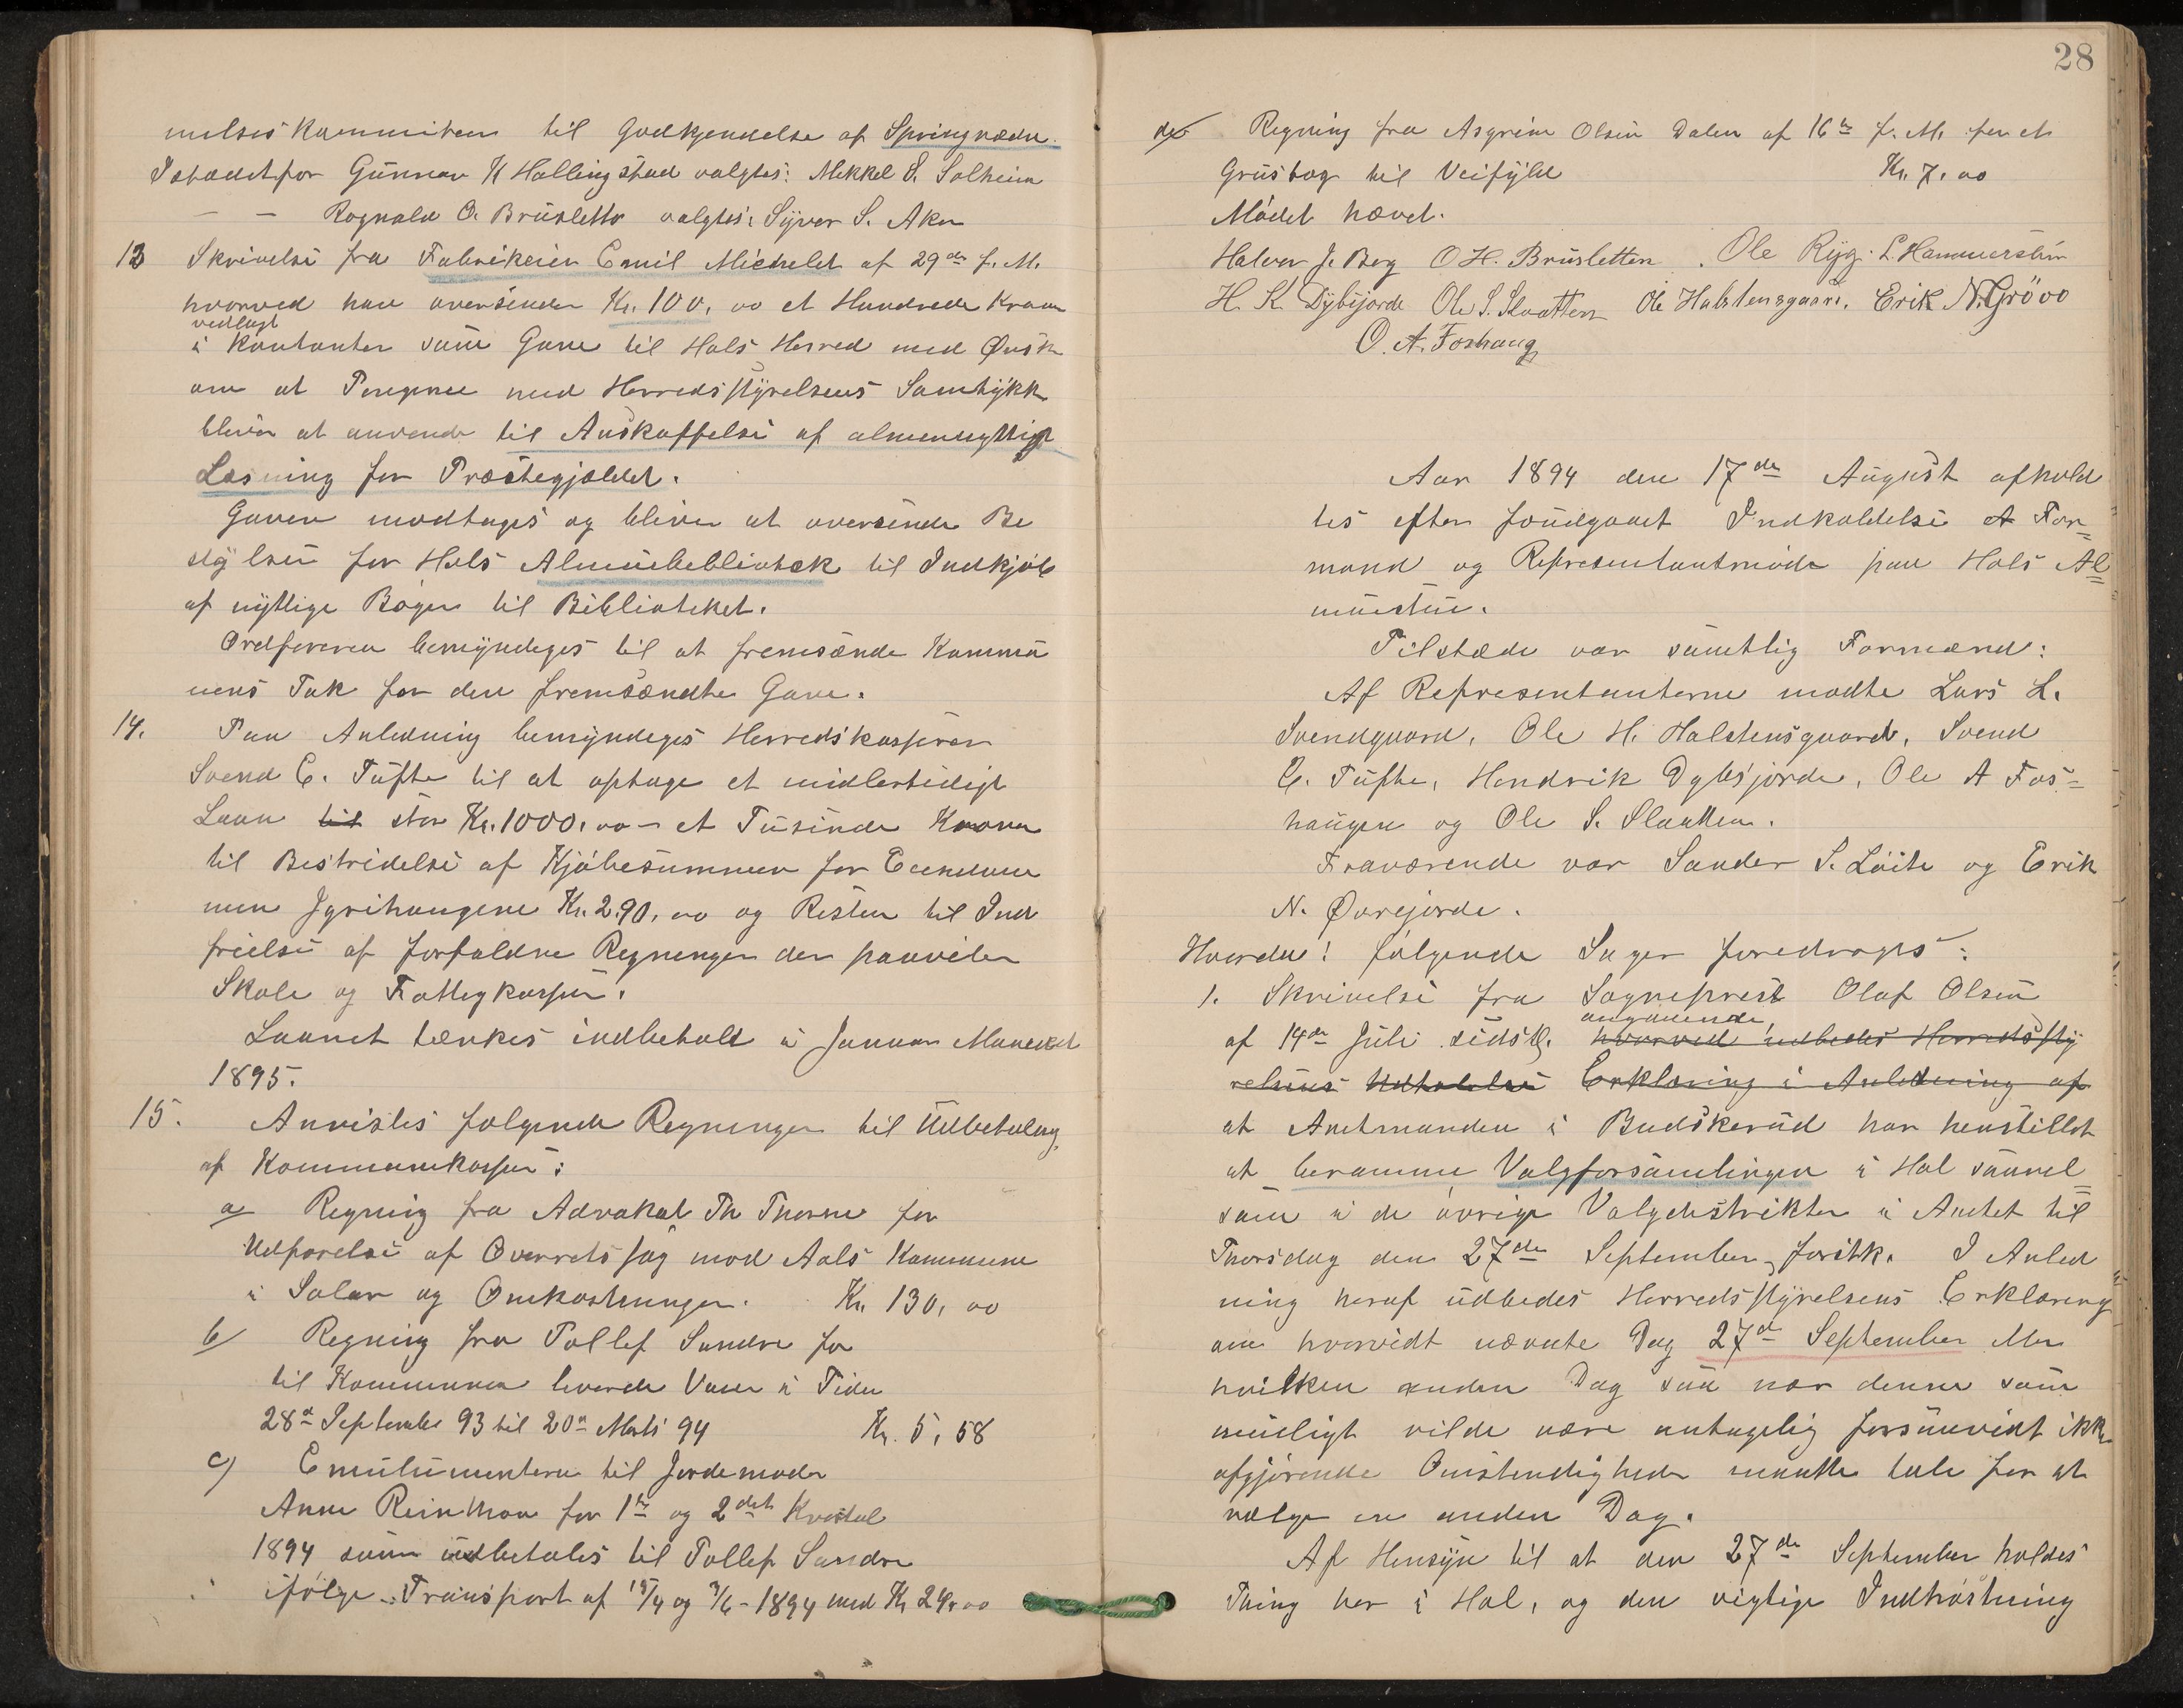 melseskommiteen til Godkjendelse af Springrædn.
Istædetfor Gunnar K Hallingstad valgtes: Mekkel S. Solheim
— — Rognald O. Brusletto valgtes: Syver S. Aker
13 Skrivelse fra Fabrikeier Emil Michelet af 29de f. M.
hvorved han oversender Kr. 100,00 et Hundrede Kroner
vedlagt
i Kontanter som Gave til Hols Herred med Ønske
om at Pengene med Herredsstyrelsens Samtykke
bliver at anvende til Anskaffelse af almennyttigt
Læsning for Præstegjældet.
Gaven modtages og bliver at oversende Be
styelsen for Hols Almuebibliothek til Indkjøb
af nyttige Bøger til Bibliotheket.
Ordføreren bemyndeges til at fremsænde Kommu
nens Tak for den fremsændte Gave.
14. Paa Anledning bemyndeges Herredskasserer
Svend E. Tufte til at optage et midlertidigt
Laan til stor Kr. 1000,00 – et Tusinde Kroner
til Bestridelse af Kjøbesummen for Eiendom
men Jgrihaugene Kr. 290,00 og Resten til Ind
frielse af forfaldne Regninger der paaviler
Skole og Fattigkassen.
Laanet tænkes indbetalt i Januar Maaned
1895.
15. Anvistes følgende Regninger til Udbetaling
af Kommunekassen:
a) Regning fra Advokat Th Thorne for
Udførelse af Overretssag mod Aals Kommune
i Salær og Omkostninger. Kr. 130,00
b) Regning fra Tollef Sundre for
til Kommunen leverede Varer i Tiden
28de September 93 til 20de Marts 94 Kr. 5,58
c) Emulumenterne til Jordemoder
Anne Reinthon for 1ste og 2det Kvartal
1894 som udbetales til Tollef Sundre
ifølge Transport af 15/4 og 3/6 - 1894 med Kr 24,00
28
d) Regning fra Asgrim Olsen Dalen af 16de f. M. for et
Grustag til Veifyld Kr. 7,00
Mødet hævet.
Halvor J. Berg O H. Brusletten. Ole Ryg. L. Hammersbøn
H. K. Dybsjorde Ole S. Slaatten Ole Halstensgaard. Erik N. Grövo
O. A. Foshaug
Aar 1894 den 17de August afhold
tes efter foudgaaet Indkaldelse et For=
mand og Representantmøde paa Hols Al=
muestue.
Tilstæde var samtlig Formænd:
Af Representanterne mødte Lars L.
Svendgaard, Ole H. Halstensgaard, Svend
E. Tufte, Hendrik Dybsjorde, Ole A Fos=
haugen og Ole S. Slaatten.
Fraværende var Sander S. Löite og Erik
N. Øvrejorde.
Hvorda! følgende Sager foredrages:
1. Skrivelse fra Sogneprest Olaf Olsen
angaaende
af 14de Juli sidstl. hvorved udbedes Herredssty
relsens Udtalelse Erklæring i Anledning af
at Amtmanden i Budskerud har henstillet
at beramme Valgforsamlingen i Hol saavel
som i de övrige Valgdistrikter i Amtet til
Thorsdag den 27de September förstk. I Anled
ning heraf udbedes Herredsstyrelsens Erklæring
om hvorvidt nævnte Dag 27de September eller
hvilken anden Dag saa nær denne som
muligt vilde være antagelig forsaavidt ikke
afgjörende Omstendigheder maatte tale for at
vælge en anden Dag.
Af Hensyn til at den 27de September holdes
Thing her i Hol, og den vigtige Indhøstning